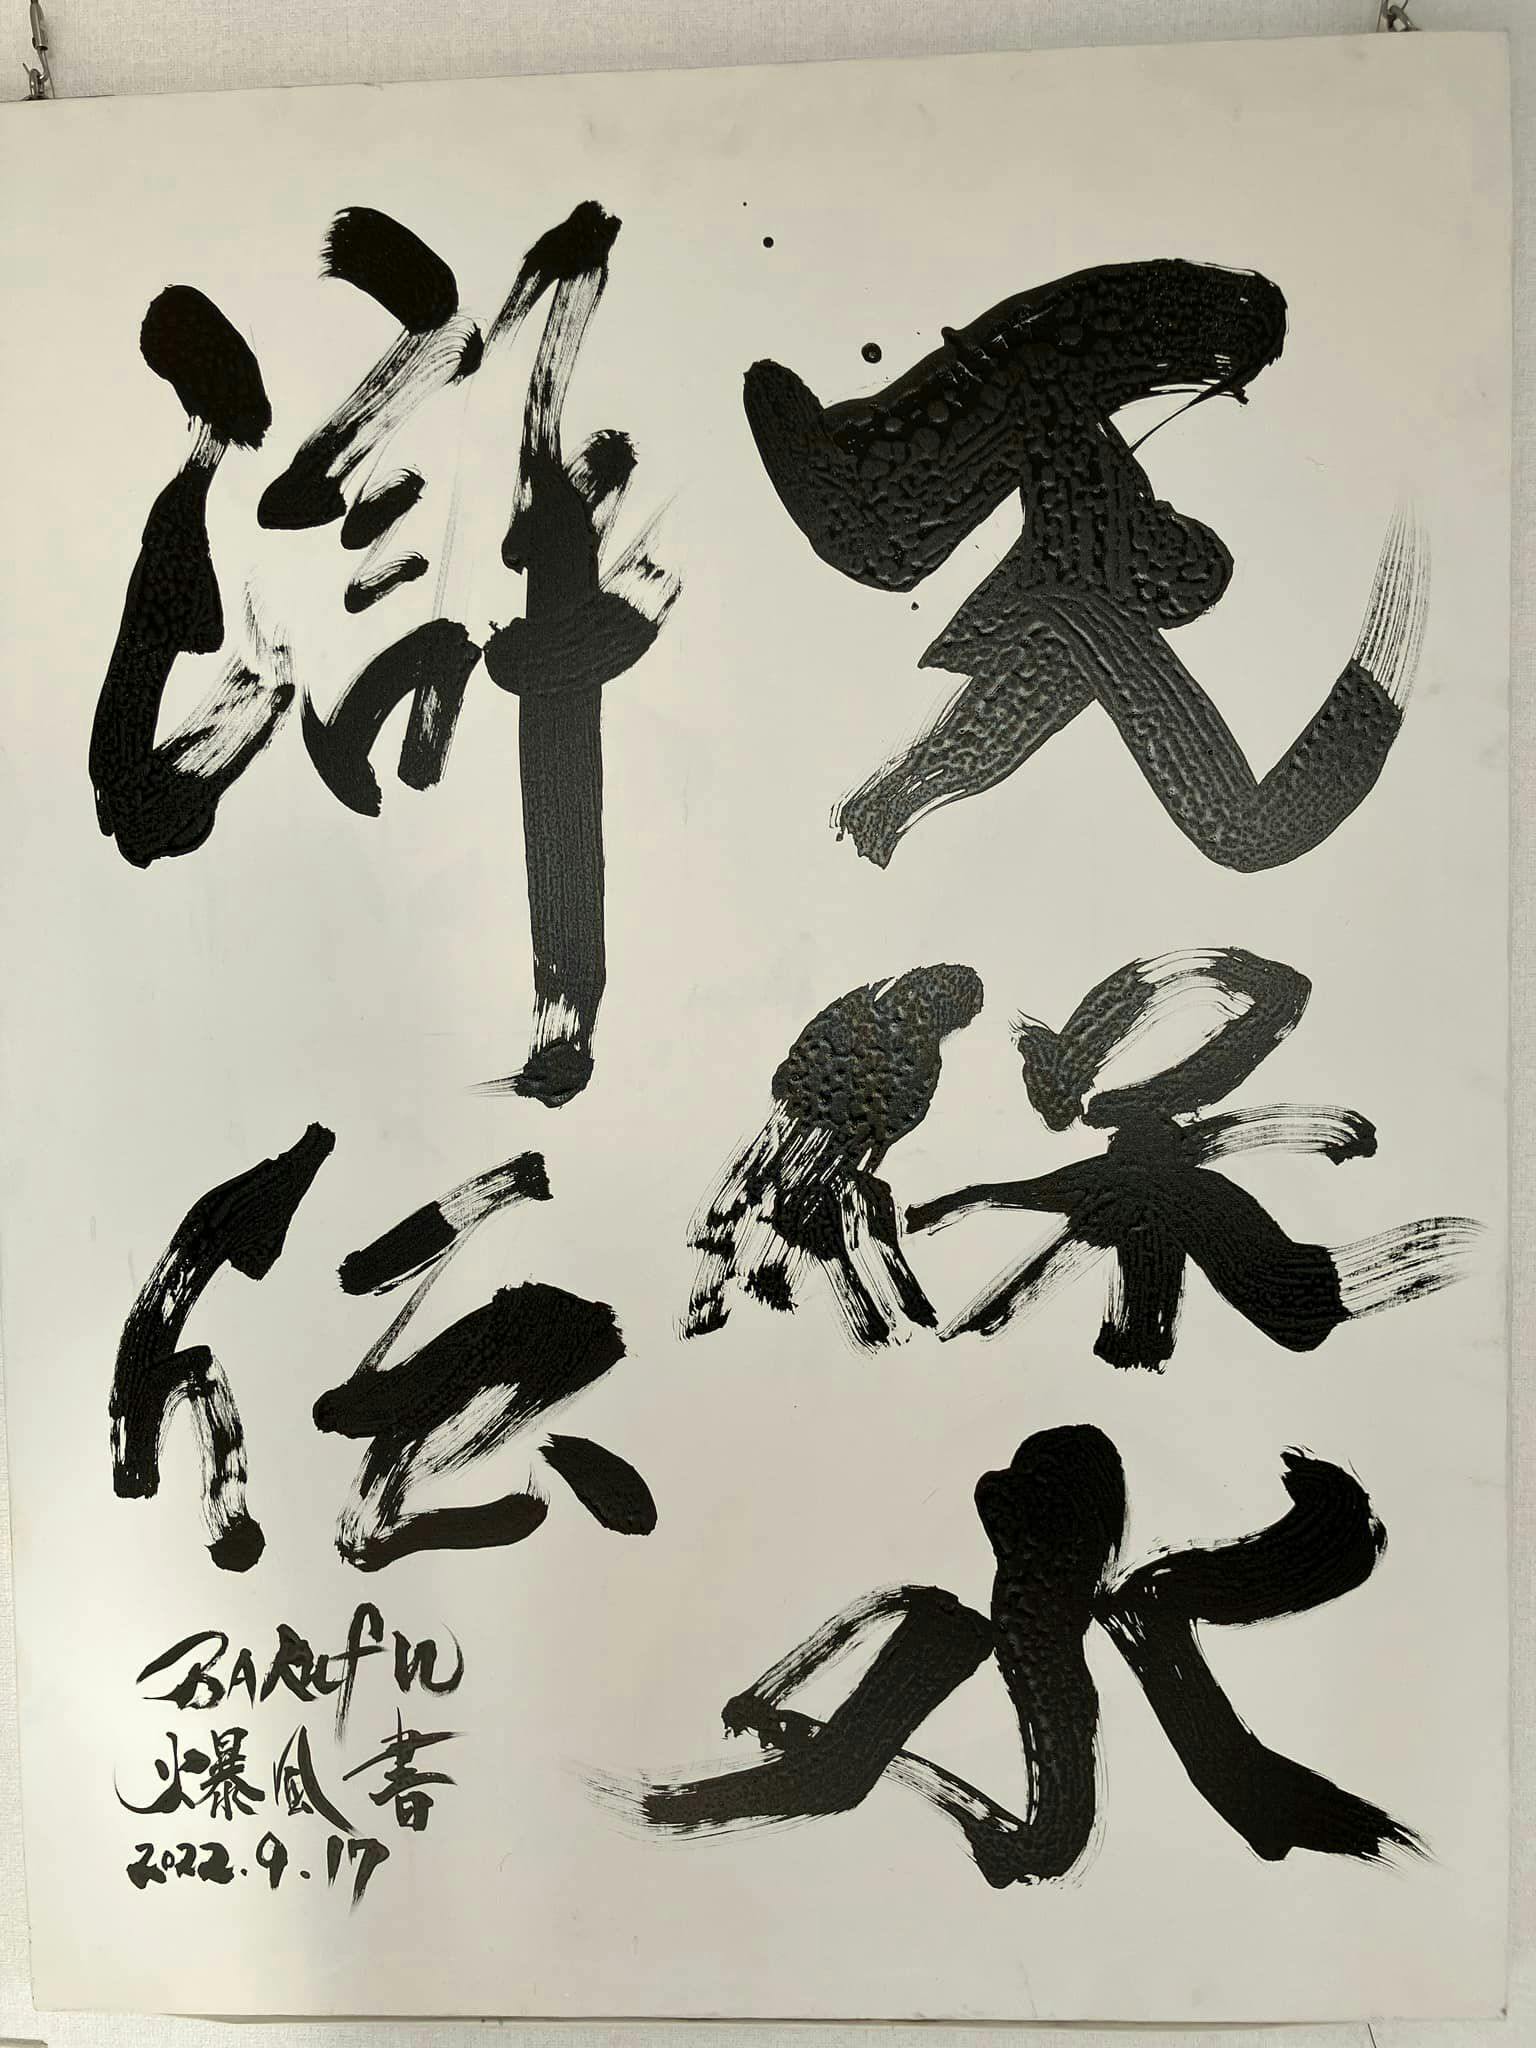 天保水
滸伝
BAKUFU
爆風書
2022.9.17